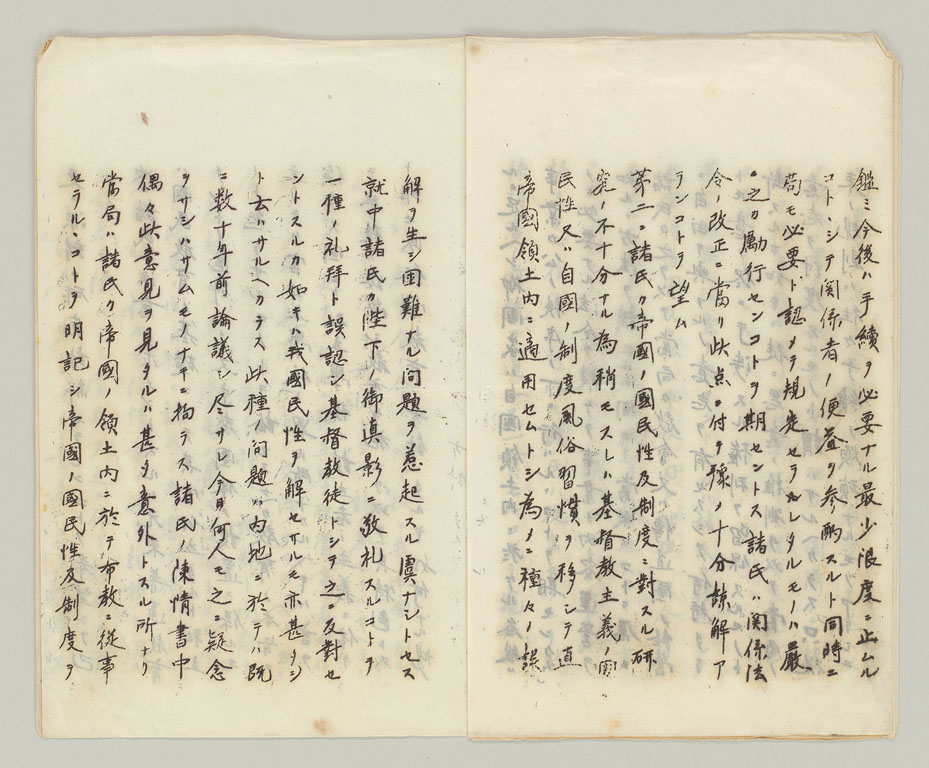 鑑ミ今後ハ手續ヲ必要ナル最少限度ニ止ムル
コトヽシテ関係者ノ便益ヲ参酌スルト同時ニ
苟モ必要ト認メテ規定セラレタルモノハ嚴
ニ之カ勵行センコトヲ期セントス諸氏ハ関係法
令ノ改正ニ當リ此点ニ付テ豫メ十分諒解ア
ランコトヲ望ム
第二ニ諸氏ク帝國ノ國民性及制度ニ對スル研
究ノ不十分ナル為稍モスレハ基督教主義ノ國
民性又ハ自國ノ制度風俗習慣ヲ移シテ直
帝國領土内ニ適用セムトシ為メニ種々ノ誤
解ヲ生シ困難ナル问題ヲ惹起スル虞ナシトセス
就中諸氏カ陛下ノ御真影ニ敬礼スルコトヲ
一種ノ礼拜ト誤認シ基督教徒トシヲ之ニ反對セ
ントスルカ如キハ我國民性ヲ解セサルモ亦甚タシ
ト云ハサルヘカラス此種ノ问題ハ内地ニ於テハ既
ニ数十年前論議シ尽サレ今日何人モ之ニ疑念
ヲサシハサムモノナキニ拘ラス諸氏ノ陳情書中
偶々此意見ヲ見タルハ甚タ意外トスル所ナリ
當局ハ諸氏ク帝國ノ領土内ニ於テ布教ニ從事
セラルヽコトヲ明記シ帝國ノ國民性及制度ヲ